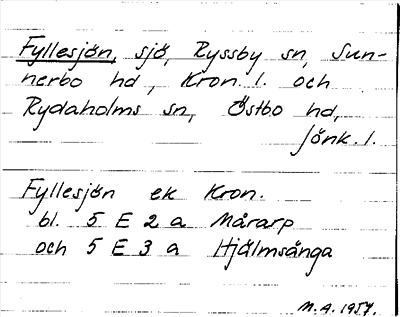 Fyllesjön, sjö, Ryssby sn, Sun-
nerbo hd, Kron. l. och
Rydaholms sn, Östbo hd,
Jönk. l.
Fyllesjön ek Kron.
bl. 5 E 2 a Mårarp
och 5 E 3 a Hjälmsånga
M.A. 1957.